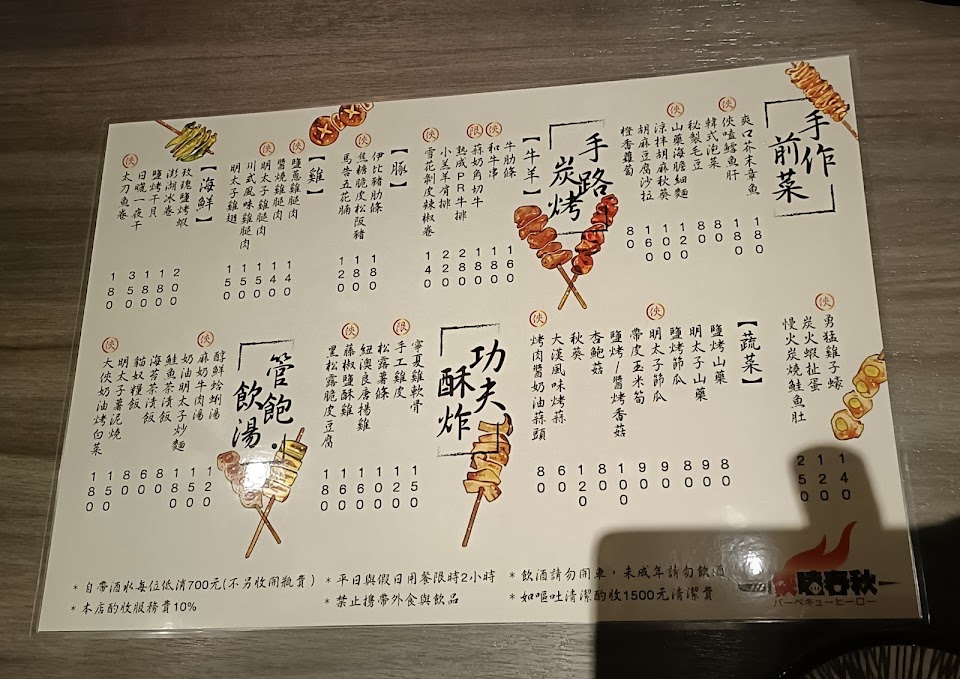 手作前菜
爽口芥末章魚 180
俠 俠嗑鱈魚肝 180
韓式泡菜 80
秘製毛豆 80
俠 山藥海膽細麵 120
涼拌胡麻秋葵 100
胡麻豆腐沙拉 160
橙香蘿蔔 80
手路炭烤
【牛羊】
牛肋條 160
俠 和牛串 100
限 蒜奶角切牛 180
熟成PR牛排 280
小羔羊肩排 220
俠 雪花剝皮辣椒卷 140
【豚】
伊比豬肋條 180
俠 焦糖脆皮松阪豬 180
馬告五花腩 120
【雞】
鹽蔥雞腿肉 140
醬燒雞腿肉 140
俠 明太子雞腿肉 150
川武風味雞腿肉 150
明太子雞翅 150
【海鮮】
玫瑰鹽烤蝦 200
澎湖冰卷 180
鹽烤干貝 180
日曬一夜干 350
俠 太刀魚卷 180
俠 勇猛雞子蠔 140
炭火蝦扯蛋 120
慢火炭燒鮭魚肚 250
【蔬菜】
鹽烤山藥 80
明太子山藥 90
鹽烤節瓜 80
俠 明太子節瓜 90
帶皮玉米筍 90
鹽烤/醬烤香菇 100
杏鮑菇 80
秋葵 120
大漢風味烤蒜 60
俠 烤肉醬奶油蒜頭 80
功夫酥炸
寧夏雞軟骨 150
限 手工雞皮 120
松露薯條 100
紐澳良唐揚雞 160
俠 藤椒鹽酥雞 160
黑松露脆皮豆腐 180
管飽.飲湯
醇鮮蛤蜊湯 120
俠 麻奶牛肉湯 150
奶油明太子炒麵 180
鮭魚茶漬飯 80
海苔茶漬飯 60
貓奴糧飯 80
明太子薯泥燒 150
俠 大俠奶油烤白菜 180
*自帶酒水每位低消700元(不另收開瓶費)
*本店酌收服務費10%
*平日與假日用餐限時2小時
*禁止攜帶外食與飲品
*飲酒請勿開車,未成年請勿飲酒
*如嘔吐清潔酌收1500元清潔費
俠曉春秋
バーベキューヒーロー